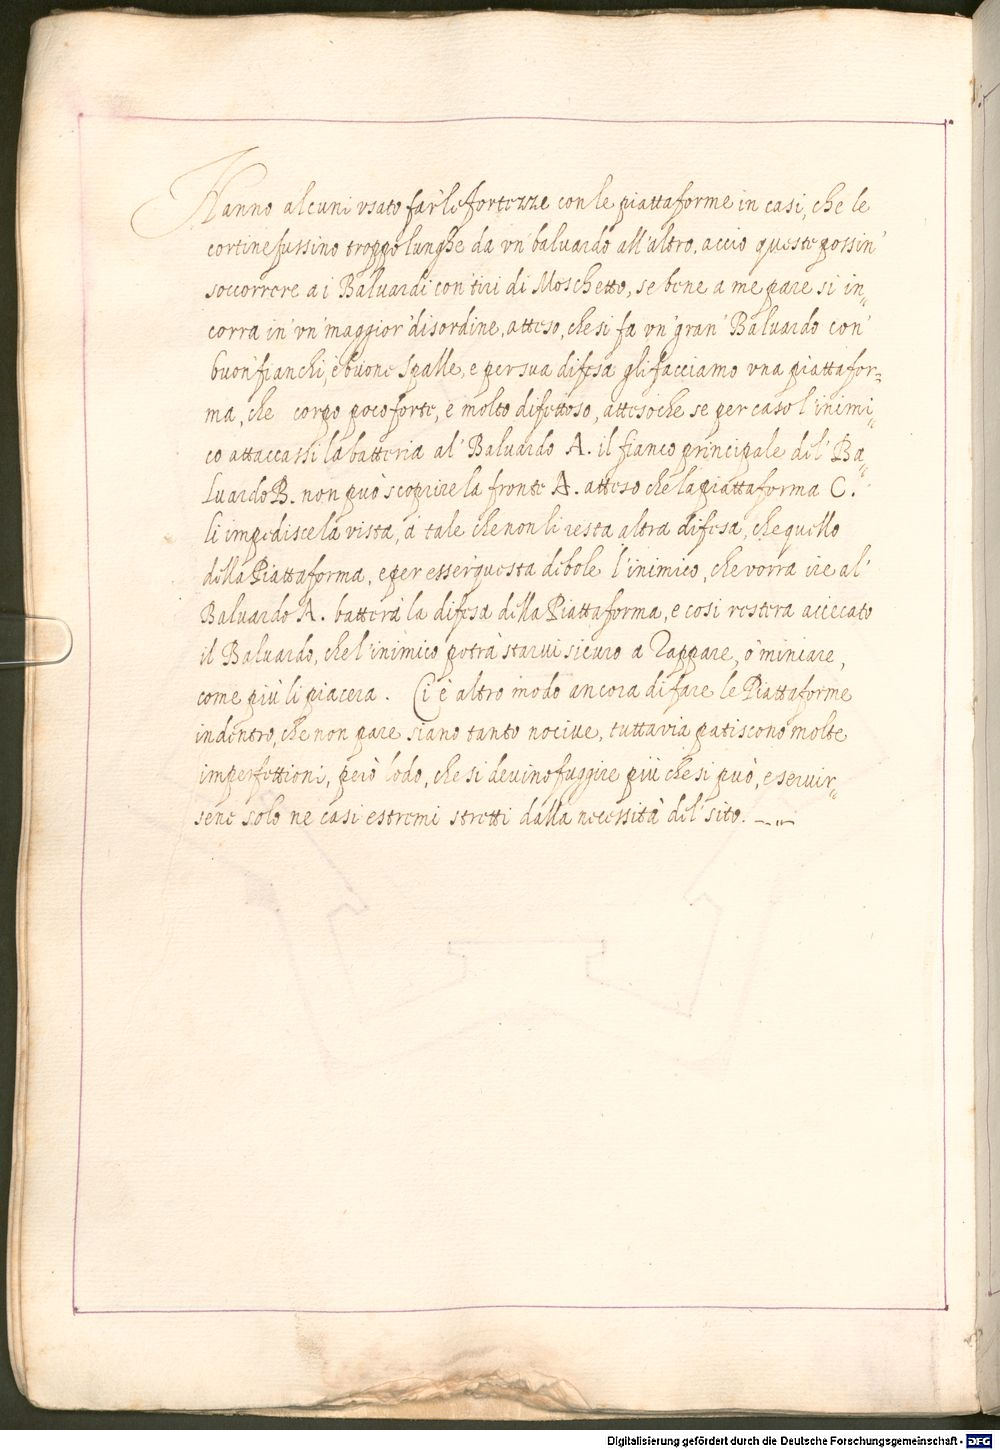 Hanno alcuni usato far le fortezze con le piattaforme in casi, che le
cortine fussino troppo lunghe da un' baluardo all'altro, accio queste possin'
soccorrere a i Baluardi con tiri di Moschetto, se bene a me pare si in„
corra in' un' maggior' disordine, atteso, che si fa un' gran' Baluardo con'
buon' fianchi, è buone spalle, e per sua difesa gli facciamo una piattafor„
ma, che corpo poco forte, e molto difettoso, attesoche se per caso l'inimi„
co attaccassi la batteria al' Baluardo A. il fianco principale del' Ba„
luardo B. non può scoprire la fronte A. atteso che la piattaforma C.
li impedisce la vista, à tale che non li resta altra difesa, che quello
della Piattaforma, e per esser questa debole l'inimico, che vorra ire al'
Baluardo A. batterà la difesa della Piattaforma, e cosi restera accecato
il Baluardo, che l'inimico potrà starui sicuro a Zappare, ò miniare,
come più li piacera. Ci è altro modo ancora di fare le Piattaforme
indentro, che non pare siano tanto nociue, tuttavia patiscono molte
imperfettioni, però lodo, che si devino fuggire più che si può, e seruir„
sene solo ne casi estremi stretti dalla necessità del' sito.
Digitalisierung gefördert durch die Deutsche Forschungsgemeinschaft - DFG